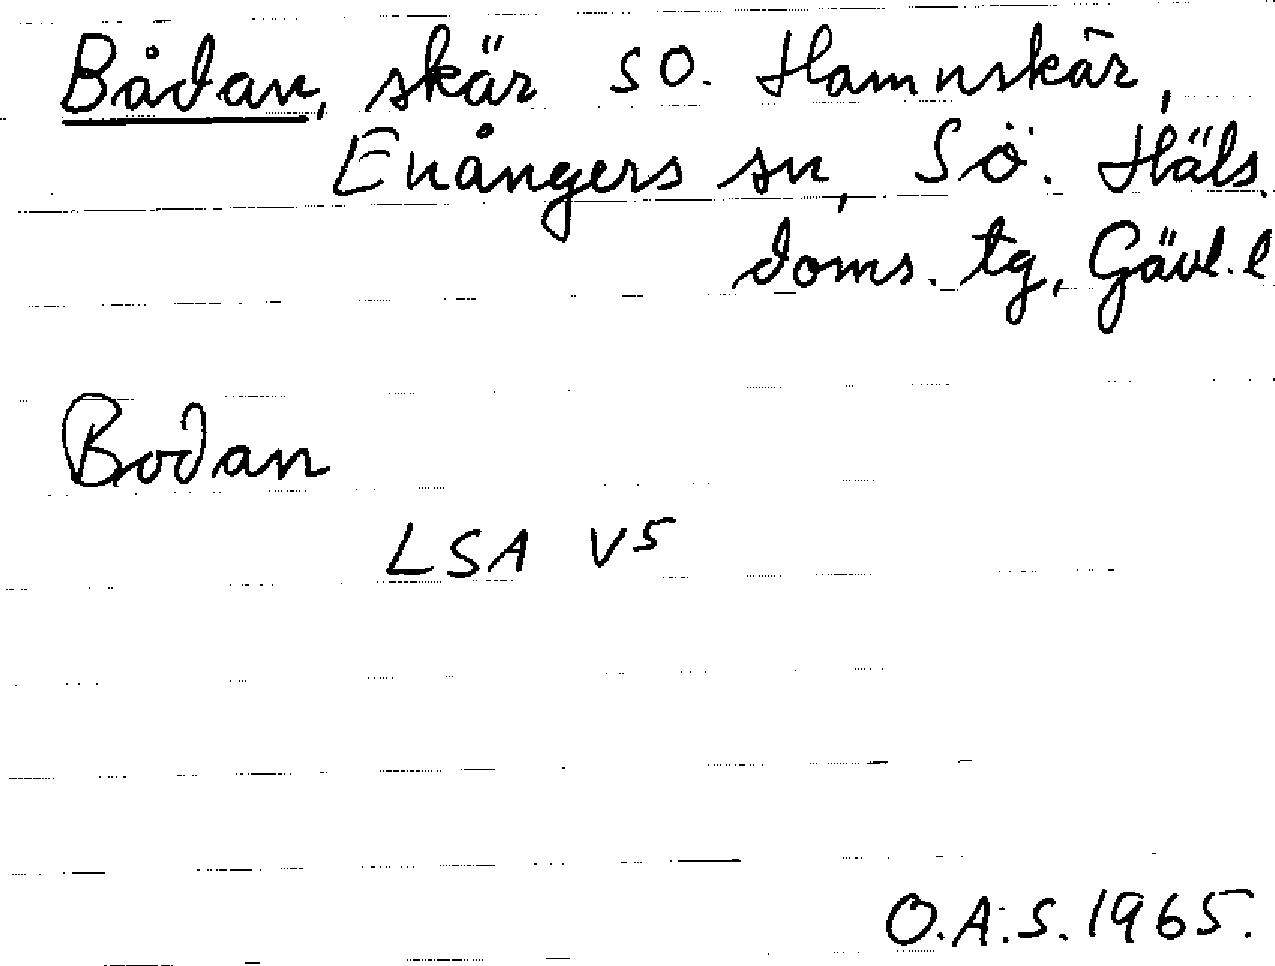 Bådan, skär SO. Hamnskär,
Enångers sn, Sö. Häls.
doms. tg, Gävl. l
Bodan
LSA V5
O.A.S. 1965.